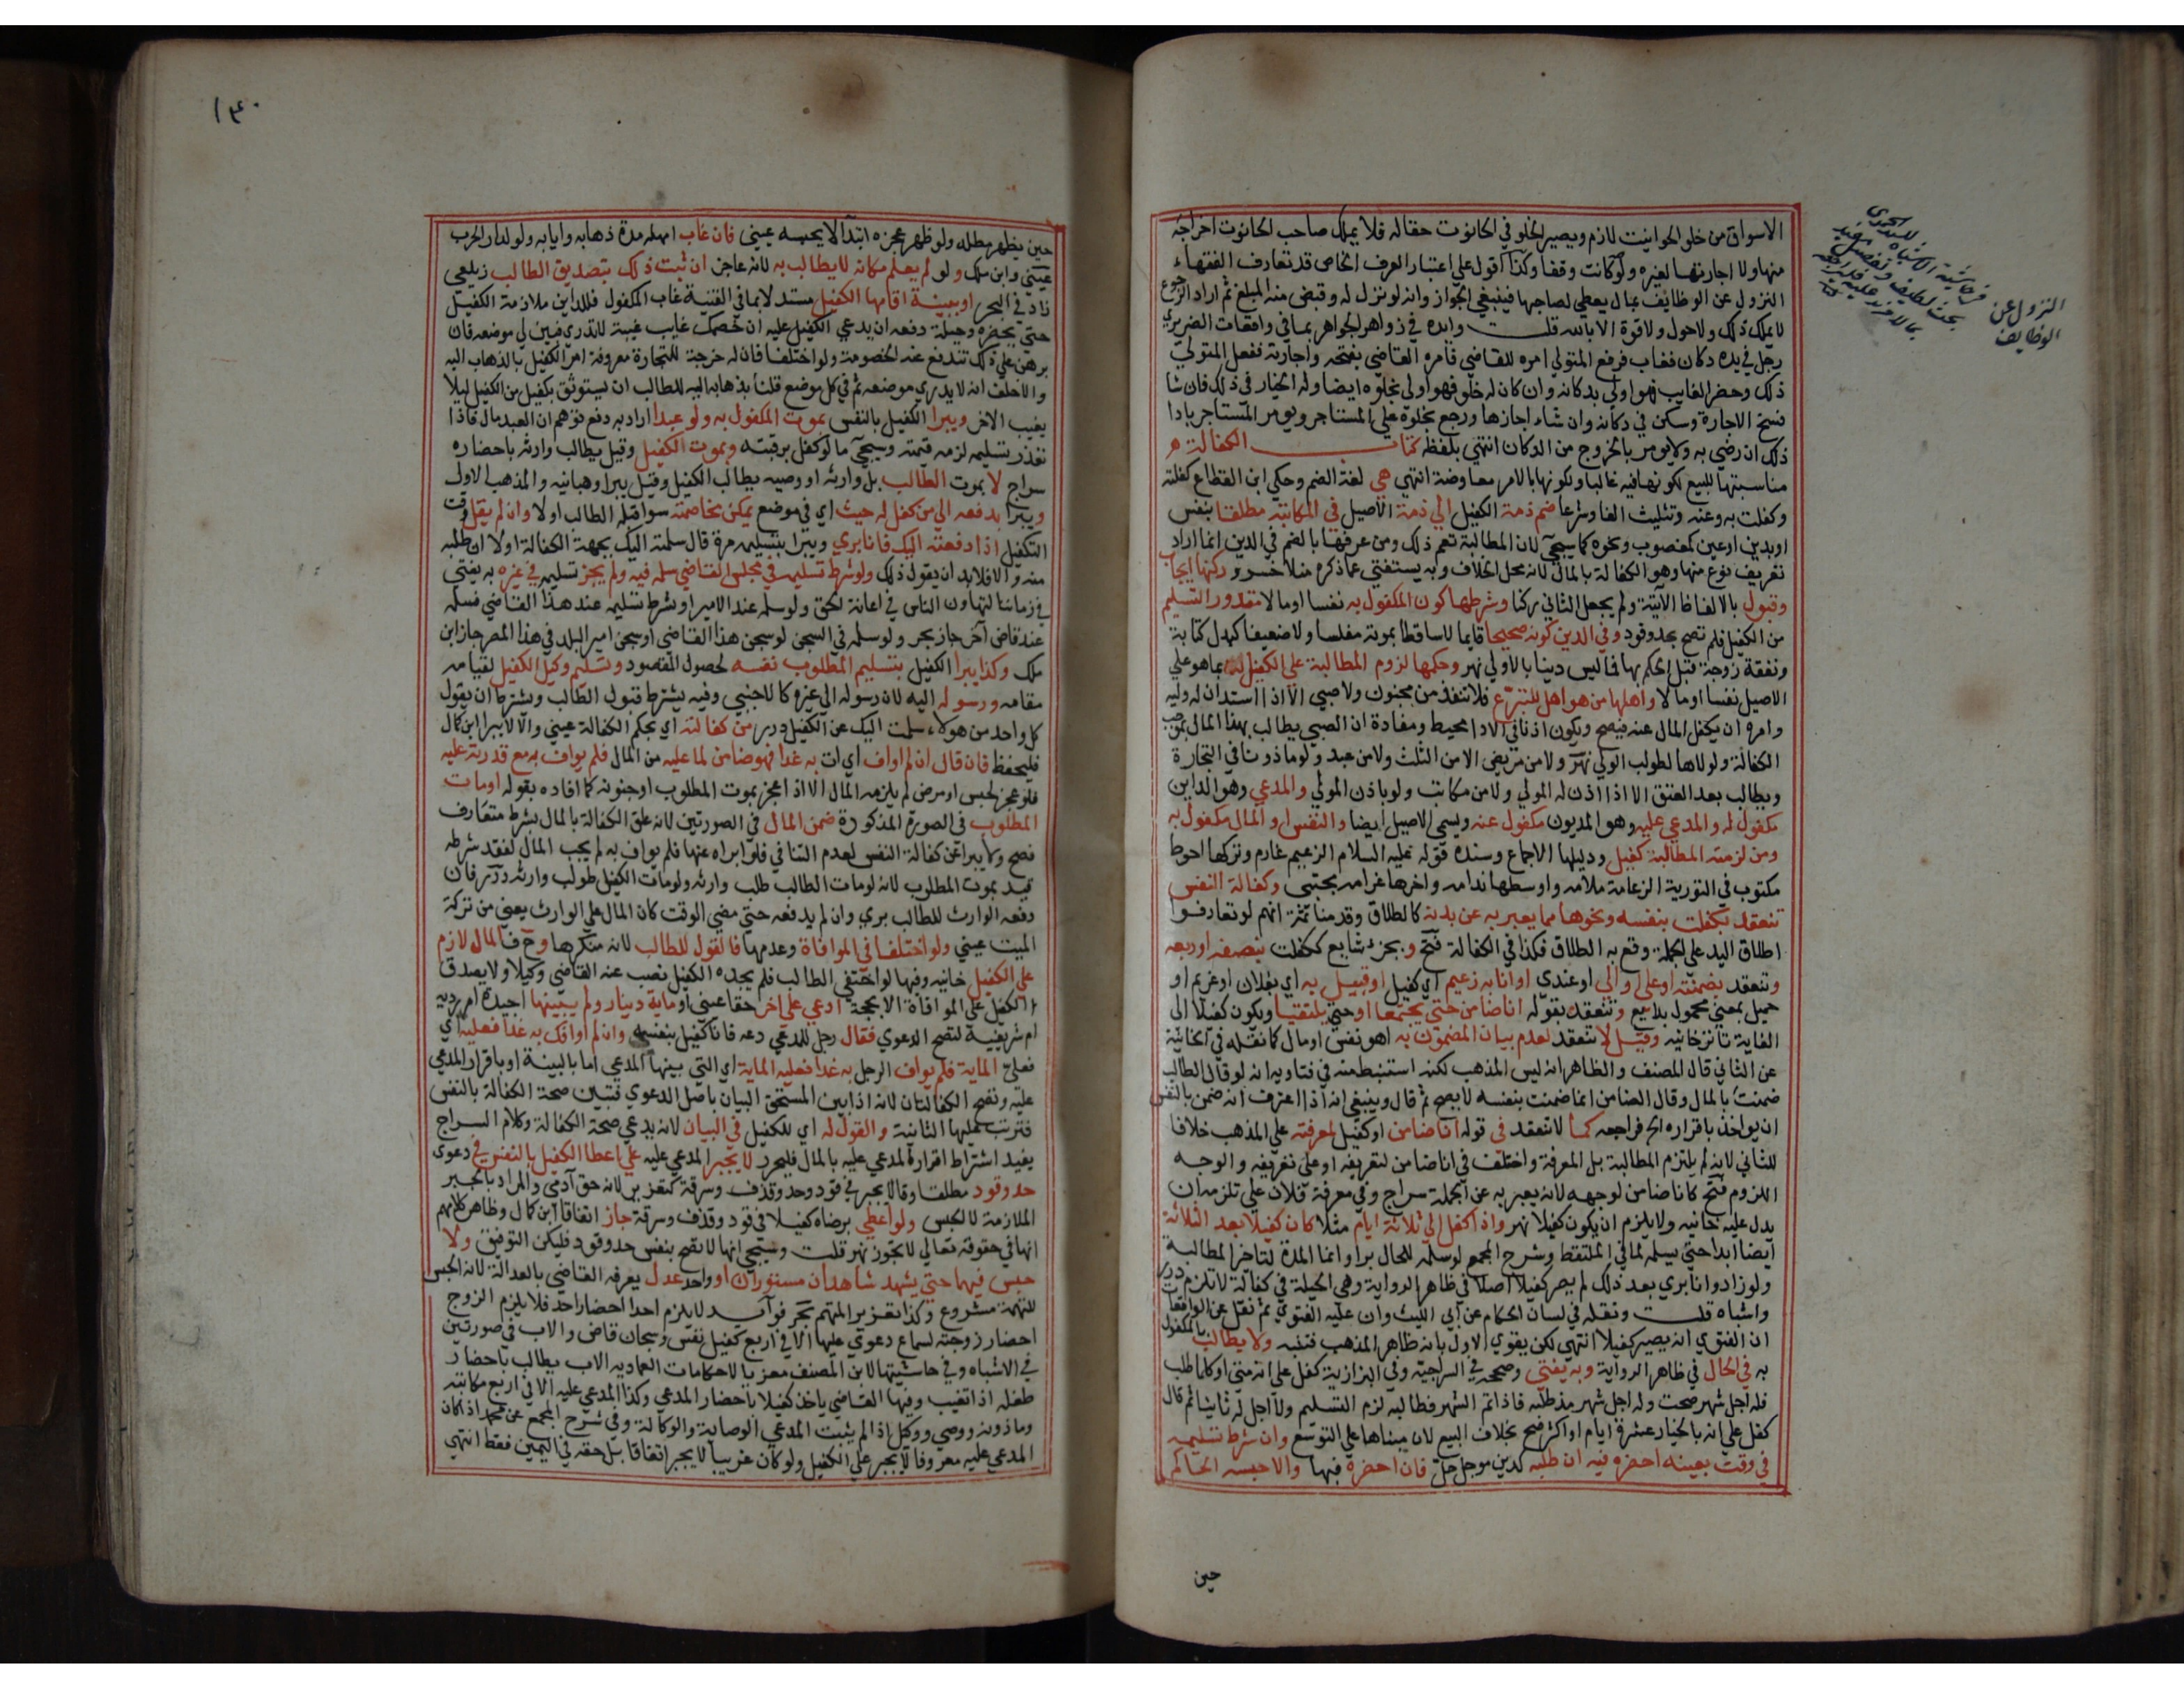 الاسواق من خلو الحوانيت لازم ويصير الخلو في الحانوت حقا له فلا يملك صاحب الحانوت اخراجه
منها ولا اجارتها لغيره ولو كانت وقفا وكذا اقول على اعتبار العرف الخاص قد تعارف الفقهاء
النزول عن الوظائف بمال يعطي لصاحبها فينبغي الجواز وانه لو نزل له وقبض منه المبلغ ثم اراد الرجوع
لا يملك ذلك ولا حول ولا قوة الا بالله قلت وايده في زواهر الجواهر بما في واقعات الضريري
رجل في يده دكان فغاب فرفع المتولي امره للقاضي فامره القاضي بفتحه واجارته ففعل المتولي
ذلك وحضر الغايب فهو اولى بدكانه وان كان له خلو فهو اولى بخلوه ايضا وله الخيار في ذلك فان شا
فسخ الاجارة وسكن في دكانه وان شاء اجازها ورجع بخلوه على المستاجر ويومر المستاجر بادا
ذلك ان رضي به والا يومر بالخروج من الدكان انتهى بلفظه كتاب الكفالة
مناسبتها للبيع لكونها فيه غالبا ولكونها بالامر معاوضة انتهى هي لغة الضم وحكى ابن القطاع كفلته
وكفلت به وعنه وتثليث الفا وشرعا ضم ذمة الكفيل الى ذمة الاصيل في المطالبة مطلقا بنفس
او بدين او عين كمغصوب ونحوه كما سيجي لان المطالبة تعم ذلك ومن عرفها بالضم في الدين انما اراد
تعريف نوع منها وهو الكفالة بالمال لانه محل الخلاف وبه يستغني عما ذكره منلا خسرو وركنها ايجاب
وقبول بالالفاظ الاتية ولم يجعل الثاني ركنا وشرطها كون المكفول به نفسا او مالا مقدور التسليم
من الكفيل فلم تصح بحد وقود وفي الدين كونه صحيحا قايما لا ساقطا بموته مفلسا ولا ضعيفا كبدل كتابة
ونفقة زوجة قبل الحكم بها فما ليس دينا بالاولى نهر وحكمها لزوم المطالبة على الكفيل بما هو على
الاصيل نفسا او مالا واهلها من هو اهل للتبرع فلا تنفذ من مجنون ولا صبي الا اذا استدان له وليه
وامره ان يكفل المال عنه فيصح ويكون اذنا في الادا محيط ومفاده ان الصبي يطالب بهذا المال بموجب
الكفالة ولولاها لطولب الولي نهر ولا من مريض الا من الثلث ولا من عبد ولو ماذونا في التجارة
ويطالب بعد العتق الا اذا اذن له المولى ولا من مكاتب ولو باذن المولى والمدعي وهو الداين
مكفول له والمدعى عليه وهو المديون مكفول عنه ويسمى الاصيل ايضا والنفس او المال مكفول به
ومن لزمته المطالبة كفيل ودليلها الاجماع وسنده قوله عليه السلام الزعيم غارم وتركها احوط
مكتوب في التورية الزعامة اولها ملامه واوسطها ندامه واخرها غرامه مجتبى وكفالة النفس
تنعقد بكفلت بنفسه ونحوها مما يعبر به عن بدنه كالطلاق وقدمنا ثمة انهم لو تعارفوا
اطلاق اليد على الجملة وقع به الطلاق فكذا في الكفالة فتح وبجزء شايع ككفلت بنصفه او ربعه
وتنعقد بضمنته او علي او الي او عندي او انا به زعيم اي كفيل او قبيل به اي بفلان او غريم او
حميل بمعنى محمول بدايع وتنعقد بقوله انا ضامن حتى يجتمعا او حتى يلتقيا ويكون كفيلا الى
الغاية تاترخانيه وقيل لا تنعقد لعدم بيان المضمون به اهو نفس او مال كما نقله في الخانية
عن الثاني قال المصنف والظاهر انه ليس المذهب لكنه استنبط منه في فتاويه انه لو قال الطالب
ضمنت بالمال وقال الضامن انما ضمنت بنفسه لا يصح ثم قال وينبغي انه اذا اعترف انه ضمن بالنفس
ان يواخذ باقراره الخ فراجعه كما لا تنعقد في قوله انا ضامن او كفيل لمعرفته على المذهب خلافا
للثاني لانه لم يلتزم المطالبة بل المعرفة واختلف في انا ضامن لتعريفه او على تعريفه والوجه
اللزوم فتح كانا ضامن لوجهه لانه يعبر به عن الجملة سراج وفي معرفة فلان علي تلزمه ان
يدل عليه خانيه ولا يلزم ان يكون كفيلا نهر واذا كفل الى ثلاثة ايام مثلا كان كفيلا بعد الثلاثة
ايضا ابدا حتى يسلمه لما في الملتقط وشرح المجمع لو سلمه للحال برا وانما المدة لتاخر المطالبة
ولو زاد وانا بري بعد ذلك لم يصر كفيلا اصلا في ظاهر الرواية وهي الحيلة في كفالة لا تلزم درر
واشباه قلت ونقله في لسان الحكام عن ابي الليث وان عليه الفتوى ثم نقل عن الواقعات
ان الفتوى انه يصير كفيلا انتهى لكن يقوي الاول بانه ظاهر المذهب فتنبه ولا يطالب بالمكفول
به في الحال في ظاهر الرواية وبه يفتى وصححه في السراجيه وفي البزازية كفل على انه متى او كلما طلب
فله اجل شهر صحت وله اجل شهر مذ طلبه فاذا تم الشهر فطالبه لزم التسليم ولا اجل له ثانيا ثم قال
كفل على انه بالخيار عشرة ايام او اكثر صح بخلاف البيع لان مبناها على التوسع وان شرط تسليمه
في وقت بعينه احضره فيه ان طلبه كدين موجل حل فان احضره فبها والا حبسه الحاكم
حين
النزول عن
الوظايف
١٤٠
حين يظهر مطله ولو ظهر عجزه ابتدآ لا يحبسه عيني فان غاب امهله مدة ذهابه وايابه ولو لدار الحرب
عيني وابن ملك ولو لم يعلم مكانه لا يطالب به لانه عاجز ان ثبت ذلك بتصديق الطالب زيلعي
زاد في البحر او ببينة اقامها الكفيل مستدلا بما في القنية غاب المكفول فللداين ملازمة الكفيل
حتى يحضره وحيلة دفعه ان يدعي الكفيل عليه ان خصمك غايب غيبة لا تدري فبين لي موضعه فان
برهن على ذلك تندفع عنه الخصومة ولو اختلفا فان له خرجة للتجارة معروفة امر الكفيل بالذهاب اليه
والا حلف انه لا يدري موضعه ثم في كل موضع قلنا بذهابه اليه للطالب ان يستوثق بكفيل من الكفيل ليلا
يغيب الاخر ويبرا الكفيل بالنفس بموت المكفول به ولو عبدا اراد به دفع توهم ان العبد مال فاذا
تعذر تسليمه لزمه قيمته وسيجي ما لو كفل برقبته وبموت الكفيل وقيل يطالب وارثه باحضاره
سراج لا بموت الطالب بل وارثه او وصيه يطالب الكفيل وقيل يبرا وهبانيه والمذهب الاول
ويبرا بدفعه الى من كفل له حيث اي في موضع يمكن مخاصمته سوا قبله الطالب او لا وان لم يقل وقت
التكفيل اذا دفعته اليك فانا بري ويبرا بتسليمه مرة قال سلمته اليك بجهة الكفالة او لا ان طلبه
منه والا فلا بد ان يقول ذلك ولو شرط تسليمه في مجلس القاضي سلمه فيه ولم يجز تسليمه في غيره به يفتى
في زماننا لتهاون الناس في اعانة الحق ولو سلمه عند الامير او شرط تسليمه عند هذا القاضي فسلمه
عند قاض اخر جاز بحر ولو سلمه في السجن لو سجن هذا القاضي او سجن امير البلد في هذا المصر جاز ابن
ملك وكذا يبرا الكفيل بتسليم المطلوب نفسه لحصول المقصود وتسليم وكيل الكفيل لقيامه
مقامه ورسوله اليه لان رسوله الى غيره كالاجنبي وفيه يشترط قبول الطالب ويشترط ان يقول
كل واحد من هولاء سلمت اليك عن الكفيل درر من كفالته اي بحكم الكفالة عيني والا لا يبرا ابن كمال
فليحفظ فان قال ان لم اواف اي ات به غدا فهو ضامن لما عليه من المال فلم يواف به مع قدرته عليه
فلو عجز لحبس او مرض لم يلزمه المال الا اذا عجز بموت المطلوب او جنونه كما افاده بقوله او مات
المطلوب في الصورة المذكورة ضمن المال في الصورتين لانه علق الكفالة بالمال بشرط متعارف
فصح ولا يبرا عن كفالة النفس لعدم التنافي فلو ابراه عنها فلم يواف به لم يجب المال لفقد شرطه
قيد بموت المطلوب لانه لو مات الطالب طلب وارثه ولو مات الكفيل طولب وارثه درر فان
دفعه الوارث للطالب بري وان لم يدفعه حتى مضى الوقت كان المال على الوارث يعني من تركة
الميت عيني ولو اختلفا في الموافاة وعدمها فالقول للطالب لانه منكرها وح فالمال لازم
على الكفيل خانيه وفيها لو اختفى الطالب فلم يجده الكفيل نصب عنه القاضي وكيلا ولا يصدق
الكفيل على الموافاة الا بحجة ادعى على اخر حقا عيني او ماية دينار ولم يبينها اجيدة ام ردية
ام شريفية لتصح الدعوى فقال رجل للمدعي دعه فانا كفيل بنفسه وان لم اوافك به غدا فعليه اي
فعلي الماية فلم يواف الرجل به غدا فعليه الماية اي التي بينها المدعي اما بالبينة او باقرار المدعى
عليه وتصح الكفالتان لانه اذا بين المستحق البيان باصل الدعوى فتبين صحة الكفالة بالنفس
فترتب عليها الثانية والقول له اي للكفيل في البيان لانه يدعي صحة الكفالة وكلام السراج
يفيد اشتراط اقرار المدعى عليه بالمال فليحرر لا يجبر المدعى عليه على اعطا الكفيل بالنفس في دعوى
حد وقود مطلقا وقالا يجبر في قود وحد وقذف وسرقة كتعزير لانه حق آدمي والمراد بالجبر
الملازمة لا الحبس ولو اعطى برضاه كفيلا في قود وقذف وسرقة جاز اتفاقا ابن كمال وظاهر كلامهم
انها في حقوقه تعالى لا تجوز نهر قلت وسيجي انها لا تصح بنفس حد وقود فليكن التوفيق ولا
حبس فيهما حتى يشهد شاهدان مستوران او واحد عدل يعرفه القاضي بالعدالة لان الحبس
للتهمة مشروع وكذا تعزير المتهم بحر فوائد لا يلزم احدا احضار احد فلا يلزم الزوج
احضار زوجته لسماع دعوى عليها الا في اربع كفيل نفس وسجان قاض والاب في صورتين
في الاشباه وفي حاشيتها لابن المصنف معزيا لاحكامات العماديه الاب يطالب باحضار
طفله اذا تغيب وفيها القاضي ياخذ كفيلا باحضار المدعي وكذا المدعى عليه الا في اربع مكاتبه
وماذونه ووصي ووكيل اذا لم يثبت المدعي الوصاية والوكالة وفي شرح المجمع عن محمد اذا كان
المدعى عليه معروفا لا يجبر على الكفيل ولو كان غريبا لا يجبر اتفاقا بل حقه في اليمين فقط انتهى